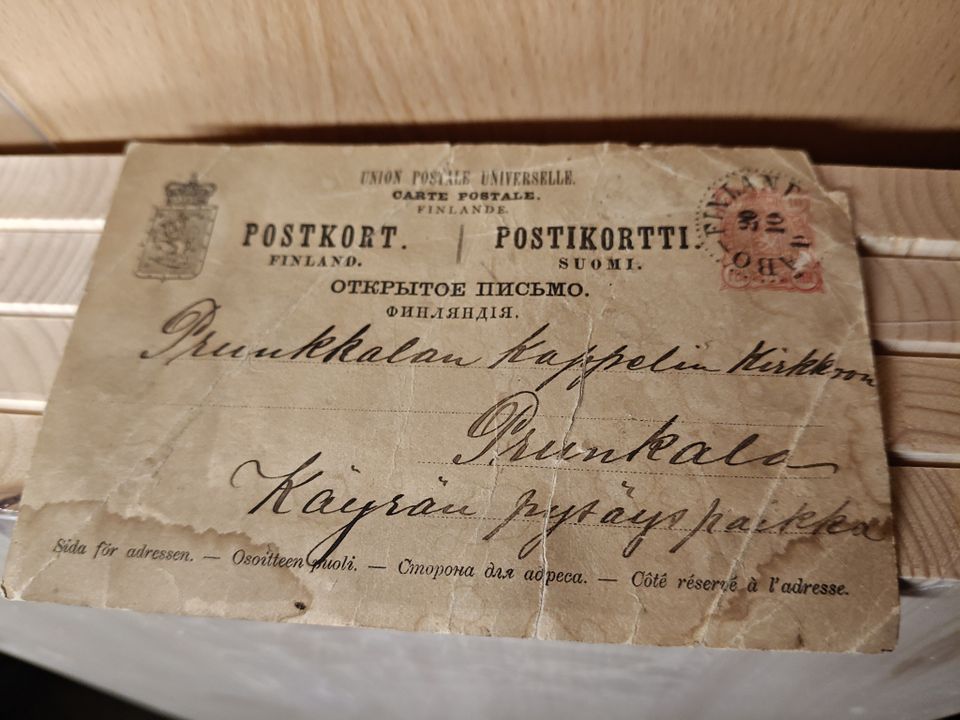 UNION POSTALE UNIVERSELLE.
CARTE POSTALE.
FINLANDE.
POSTKORT. | POSTIKORTTI.
FINLAND. SUOMI.
ОТКРЫТОЕ ПИСЬМО.
ФИНЛЯНДІЯ.
FINLAND
ÅBO
Prunkkalan Kappelin Kirkkoon
Prunkala
Käyrän pysäyspaikka
Sida för adressen. — Osoitteen puoli. — Сторона для адреса. — Côté réservé à l'adresse.